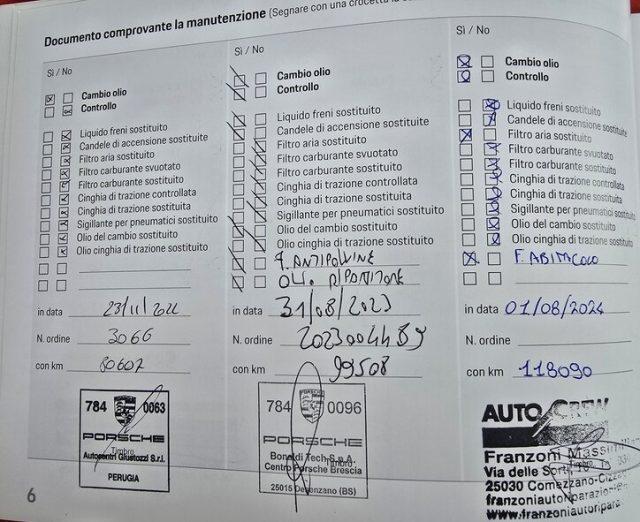 Documento comprovante la manutenzione (Segnare con una crocetta la
Sì / No
Cambio olio
Controllo
Liquido freni sostituito
Candele di accensione sostituite
Filtro aria sostituito
Filtro carburante svuotato
Filtro carburante sostituito
Cinghia di trazione controllata
Cinghia di trazione sostituita
Sigillante per pneumatici sostituito
Olio del cambio sostituito
Olio cinghia di trazione sostituito
in data 23/11/2022
N. ordine 3066
con km 80607
784 0063
PORSCHE
Timbro
Autocentri Giustozzi S.r.l.
PERUGIA
Sì / No
Cambio olio
Controllo
Liquido freni sostituito
Candele di accensione sostituite
Filtro aria sostituito
Filtro carburante svuotato
Filtro carburante sostituito
Cinghia di trazione controllata
Cinghia di trazione sostituita
Sigillante per pneumatici sostituito
Olio del cambio sostituito
Olio cinghia di trazione sostituito
F. ANTIPOLLINE
OLIO RIPARTITORE
in data 31/08/2023
N. ordine 2023004489
con km 99508
784 0096
PORSCHE
Timbro
Bonaldi Tech S.p.A.
Centro Porsche Brescia
25015 Desenzano (BS)
Sì / No
Cambio olio
Controllo
Liquido freni sostituito
Candele di accensione sostituite
Filtro aria sostituito
Filtro carburante svuotato
Filtro carburante sostituito
Cinghia di trazione controllata
Cinghia di trazione sostituita
Sigillante per pneumatici sostituito
Olio del cambio sostituito
Olio cinghia di trazione sostituito
F. ABITACOLO
in data 01/08/2024
N. ordine
con km 118090
AUTO CREW
Franzoni
Timbro
Via delle
25030 Comezzano-
franzoniautoriparazioni
www.franzoniautoripara
6